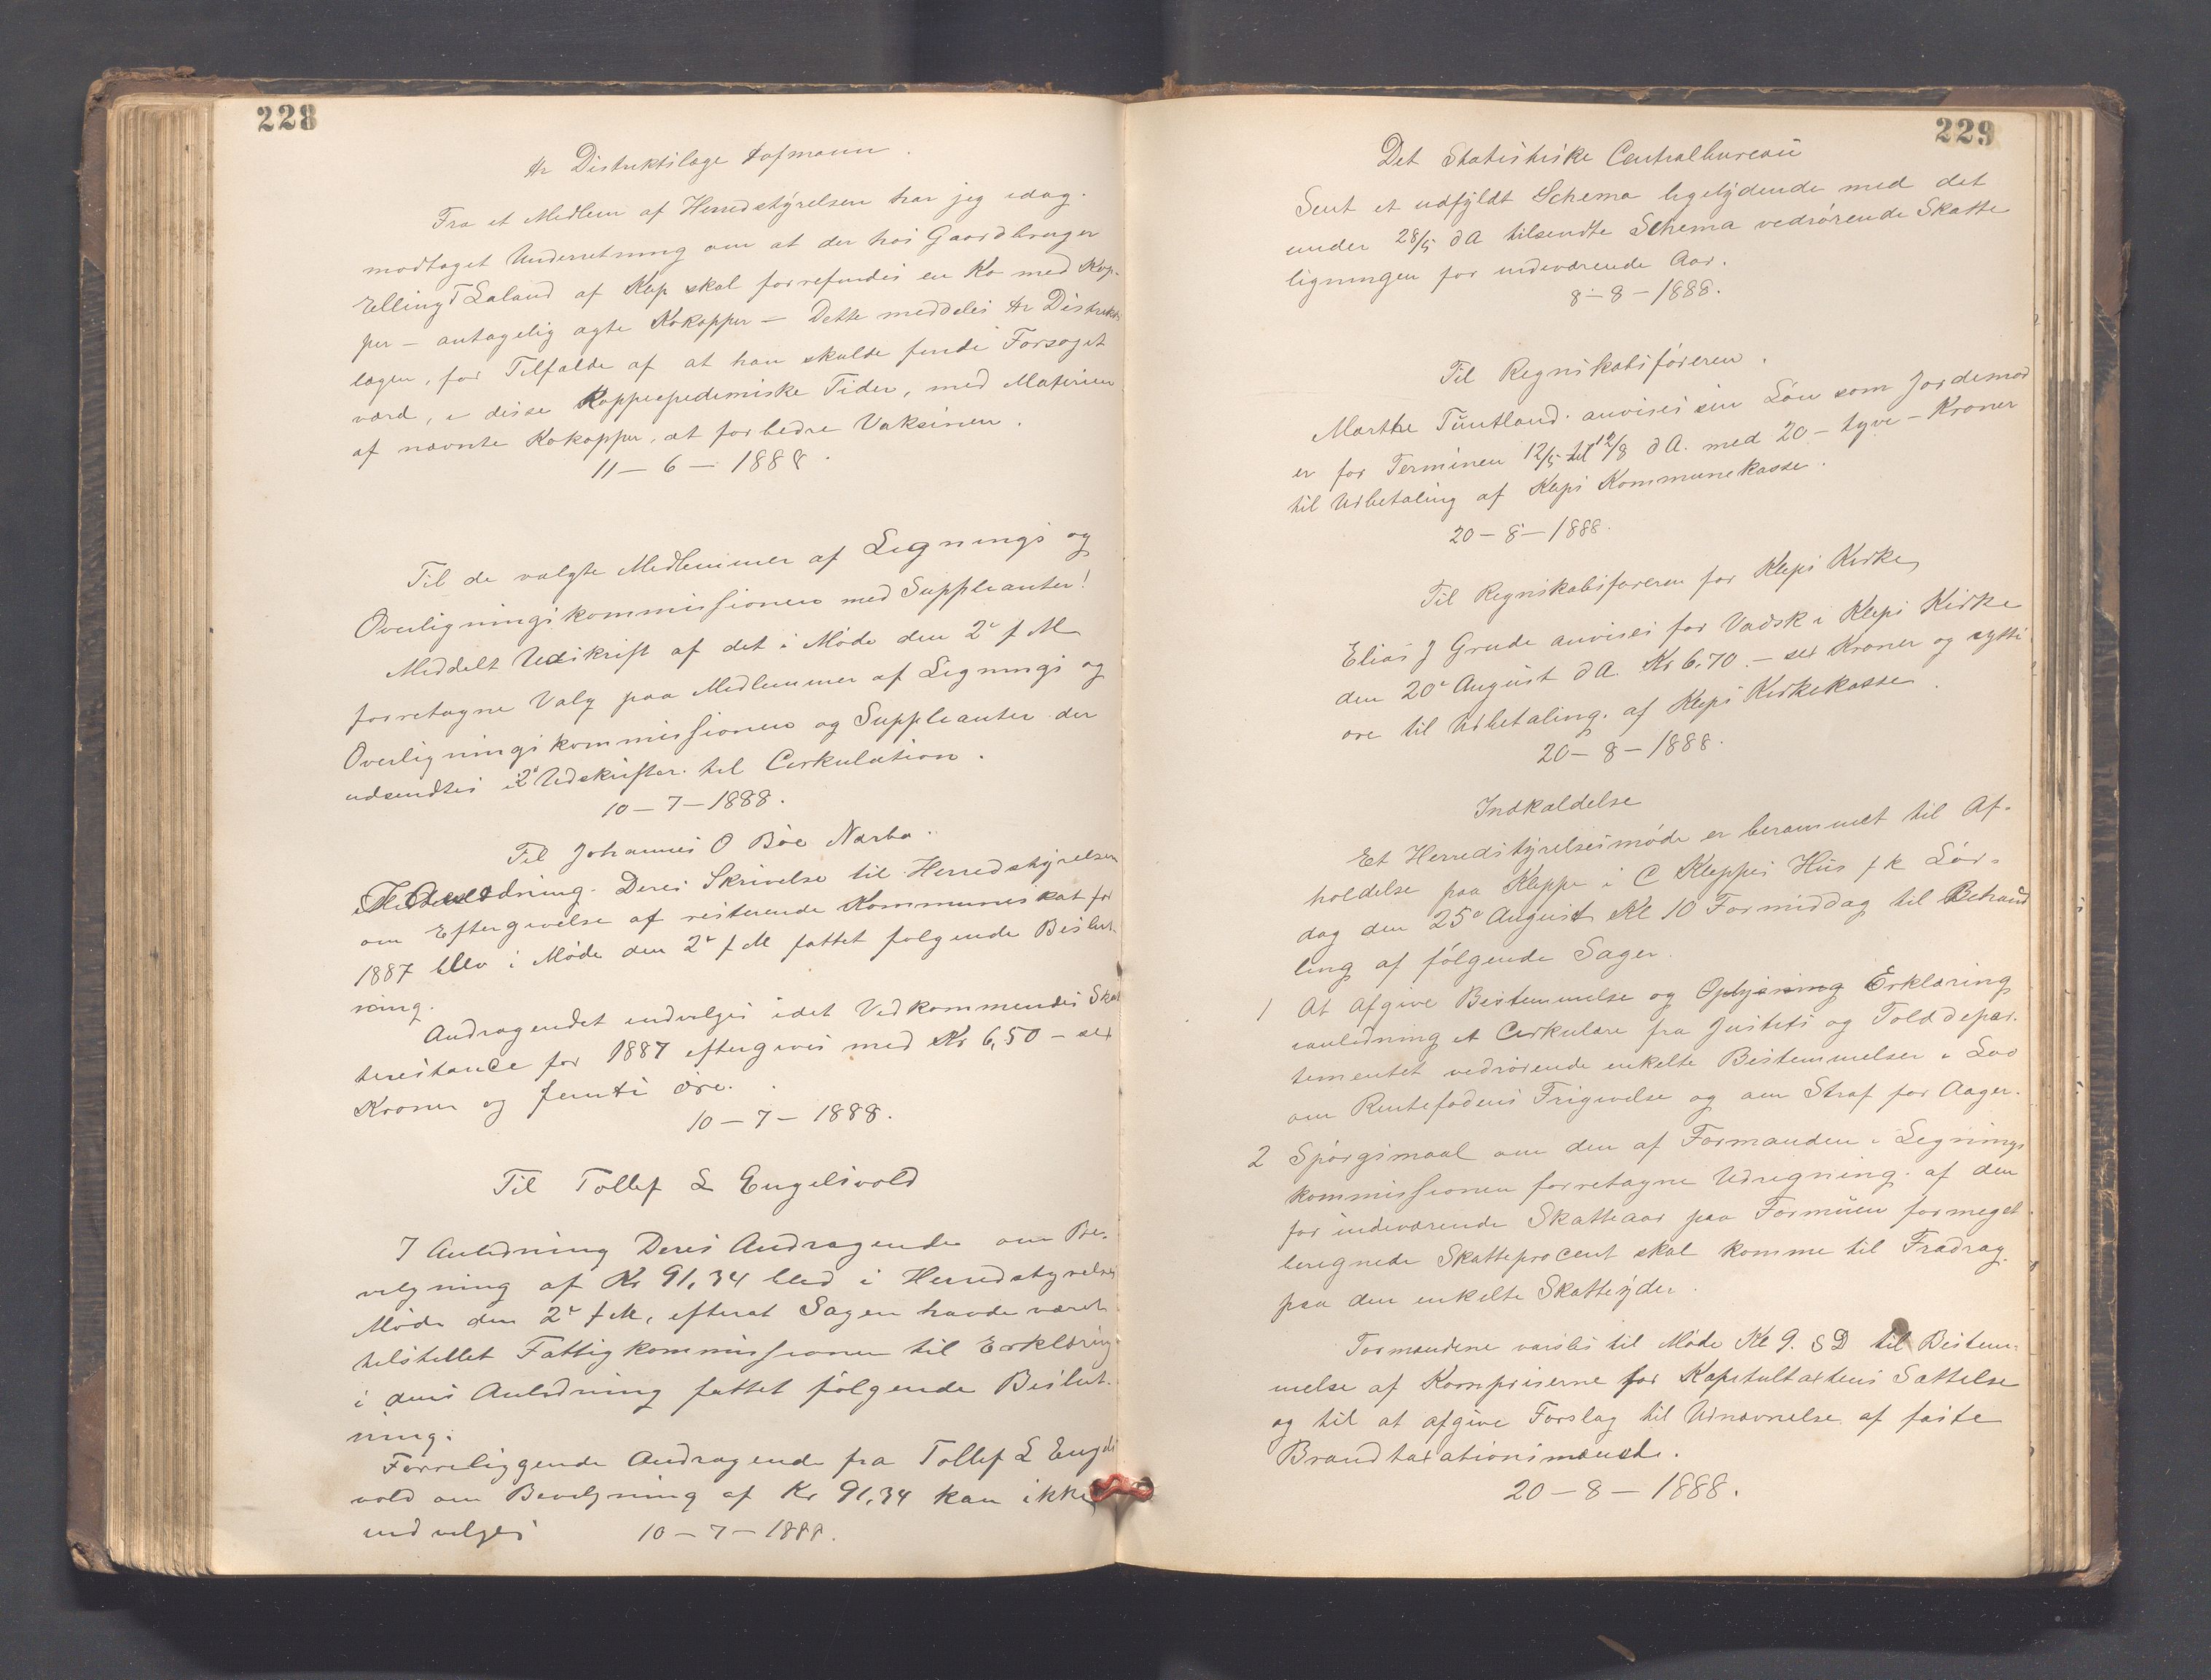 228
Hr Distriktslæge Hofmann.
Fra et Medlem af Herredstyrelsen har jeg idag
modtaget Underretning om at der hos Gaardbruger
Elling T Laland af Klep skal forrefindes en Ko med Kop-
per – antagelig ægte Kokopper – Dette meddeles Hr Distrikts
lægen, for Tilfælde af at han skulde finde Forsøget
værd, i disse Koppeepedemiske Tider, med Materien
af nævnte Kokopper, at forbedre Vaksinen.
11 – 6 – 1888.
Til de valgte Medlemmer af Lignings og
Overligningskommissionen med Suppleanter!
Meddelt Udskrift af det i Møde den 2den f M
forretagne Valg paa Medlemmer af Lignings og
Overligningskommissionen og Suppleanter der
udsendtes i 2 Udskrifter til Cirkulation.
10 – 7 – 1888.
Til Johannes O Bøe Nærbø.
I Anledning Deres Skrivelse til Herredstyrelsen
om Eftergivelse af resterende Kommuneskat for
1887 blev i Møde den 2den f M fattet følgende Beslut-
ning.
Andragendet indvilges idet Vedkommendes Skat
terestance for 1887 eftergives med Kr 6,50 – sex
Kroner og femti øre.
10 – 7 – 1888.
Til Tollef L Engelsvold
I Anledning Deres Andragende om Be-
vilgning af Kr 91,34 bled i Herredstyrelses
Møde den 2den f M, efterat Sagen havde været
tilstillet Fattigkommissionen til Erklæring
i dens Anledning fattet følgende Beslut-
ning:
Forreliggende Andragende fra Tollef L Engels
vold om Bevilgning af Kr 91,34 kan ikke
indvilges 10 – 7 – 1888.
229
Det Statistiske Centralbureau
Sent et udfyldt Schema ligelydende med det
under 28/5 d A tilsendte Schema vedrørende Skatte
ligningen for indeværende Aar.
8 – 8 – 1888.
Til Regnskabsføreren.
Marthe Tuntland anvises sin Løn som Jordemod
er for Terminen 12/5 til 12/8 d A. med 20 – tyve – Kroner
til Udbetaling af Kleps Kommunekasse.
20 – 8 – 1888.
Til Regnskabsføreren for Kleps Kirke,
Elias J Grude anvises for Vadsk i Kleps Kirke
den 20de August d A. Kr 6,70 – sex Kroner og sytti
øre til Udbetaling af Kleps Kirkekasse.
20 – 8 – 1888.
Indkaldelse
Et Herredstyrelsesmøde er berammet til Af-
holdelse paa Kleppe i C Kleppes Hus f k Lør-
dag den 25de August Kl 10 Formiddag til Behand
ling af følgende Sager.
1 At afgive Bestemmelse og Oplysning Erklæring
ianledning et Cirkulære fra Justits og Politidepar-
tementet vedrørende enkelte Bestemmelser i Lov
om Rentefodens Frigivelse og om Straf for Aager.
2 Spørgsmaal om den af Formanden i Lignings
kommissionen forretagne Udregning af den
for indeværende Skatteaar paa Formuen formeget
beregnede Skatteprocent skal komme til Fradrag
paa den enkelte Skatteyder.
Formændene varsles til Møde Kl 9. S D til Bestem-
melse af Kornpriserne for Kapitultaxtens Sættelse
og til at afgive Forslag til Udnævnelse af faste
Brandtaxationsmænd.
20 – 8 – 1888.